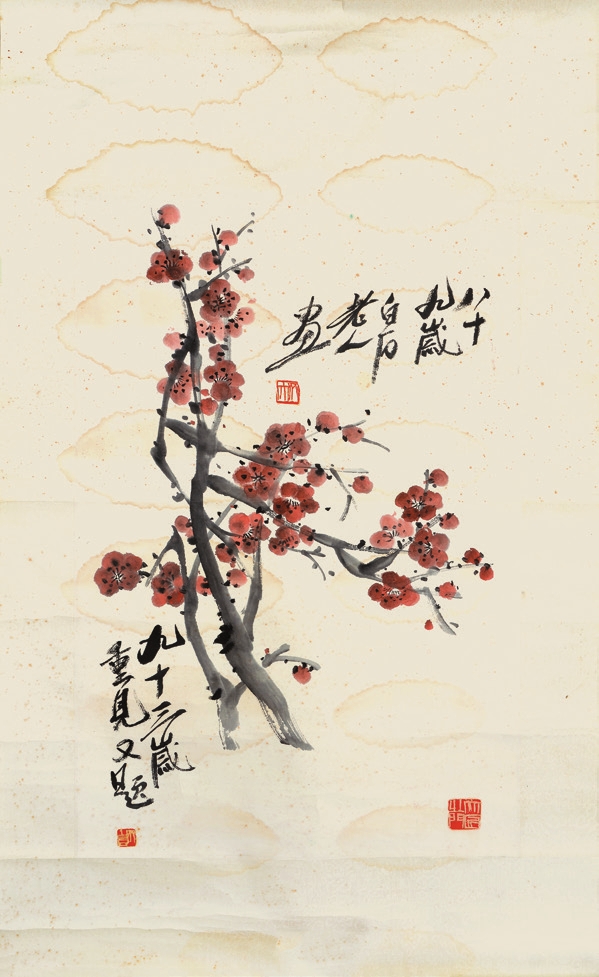 八十
九歲
白石
老人
畫
九十三歲
重見又題